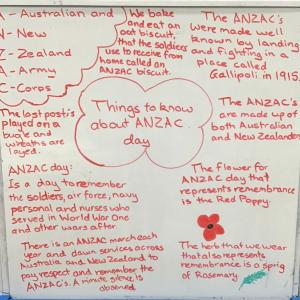 A - Australian and
N - New
Z - Zealand
A - Army
C - Corps
We bake
and eat an
oat biscuit,
that the soldiers
use to receive from
home called an
ANZAC biscuit.
The ANZAC's
were made well
known by landing
and fighting in a
place called
Gallipoli in 1915
Things to know
about ANZAC
day
The last post is
played on a
bugle and
wreaths are
layed.
The ANZAC's
are made up of
both Australian
and New Zealanders
ANZAC day:
Is a day to remember
the soldiers, air force, navy
personal and nurses who
served in World War One
and other wars after.
The flower for
ANZAC day that
represents remembrance
is the Red Poppy.
There is an ANZAC march each
year and dawn services across
Australia and New Zealand to
pay respect and remember the
ANZAC's. A minute silence is
observed
The herb that we wear
that also represents
remembrance is a sprig
of Rosemary.